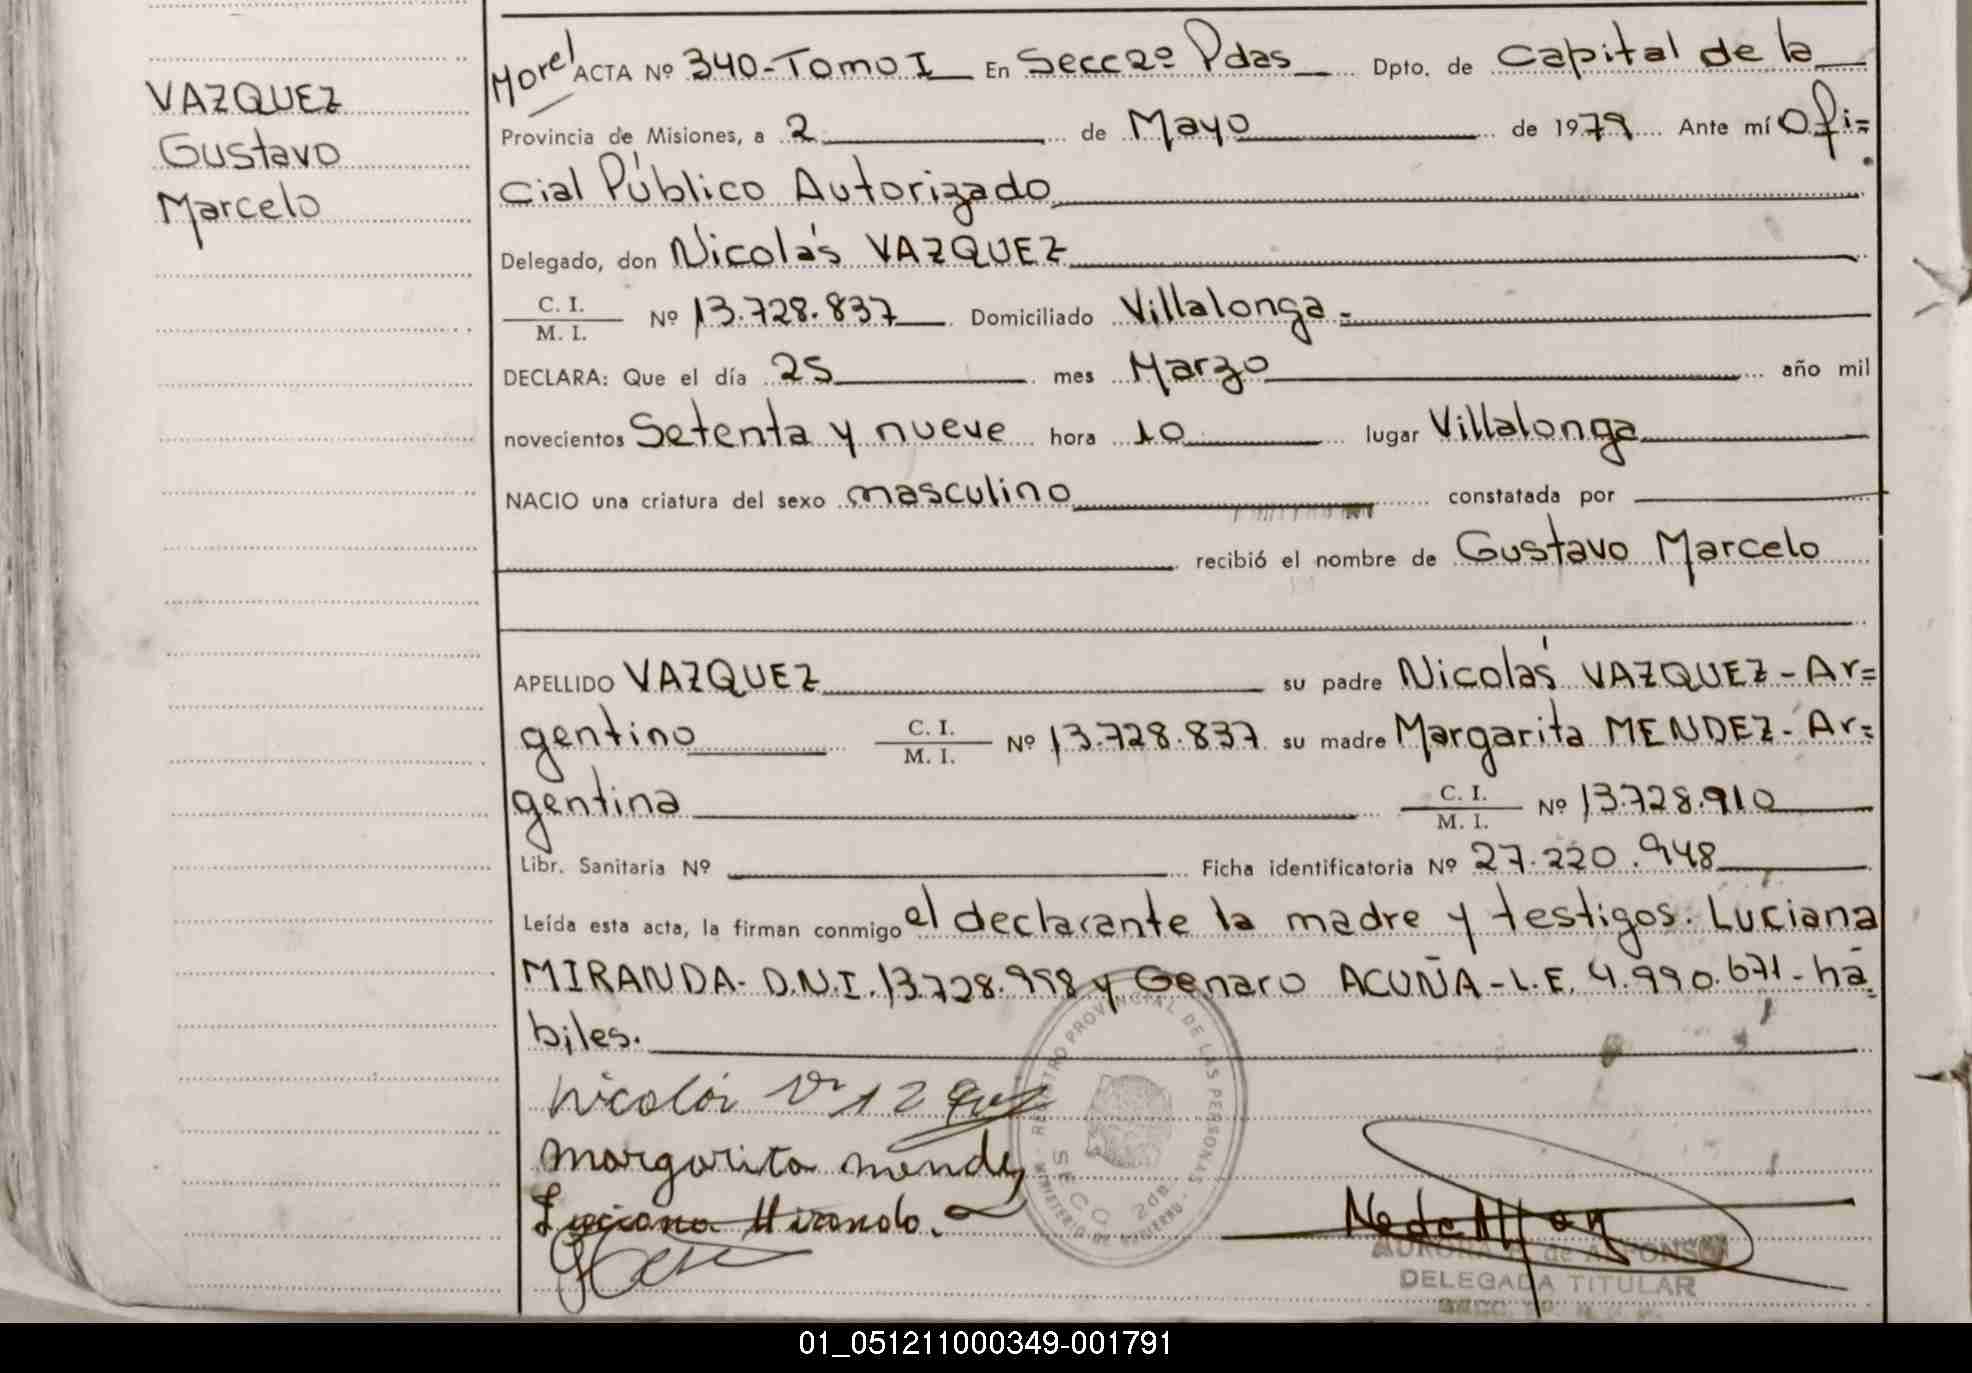 VAZQUEZ
Gustavo
Marcelo
Morel ACTA Nº 340-Tomo I En Secc 2º Pdas Dpto. de Capital de la
Provincia de Misiones, a 2 de Mayo de 1979 Ante mí Ofi=
cial Público Autorizado
Delegado, don Nicolás VAZQUEZ
C. I.
M. I. Nº 13.728.837 Domiciliado Villalonga.-
DECLARA: Que el día 25 mes Marzo año mil
novecientos Setenta y nueve hora 10 lugar Villalonga
NACIO una criatura del sexo masculino constatada por
recibió el nombre de Gustavo Marcelo
APELLIDO VAZQUEZ su padre Nicolás VAZQUEZ - Ar=
gentino C. I. M. I. Nº 13.728.837 su madre Margarita MENDEZ- Ar=
gentina C. I. M. I. Nº 13.728.910
Libr. Sanitaria Nº Ficha identificatoria Nº 27.220.948
Leída esta acta, la firman conmigo el declarante la madre y testigos. Luciana
MIRANDA- D.N.I. 13.728.958 y Genaro ACUÑA - L.E. 4.990.671- há=
biles.
Nicolás Vazquez
Margarita Mendez
Luciana Miranda.
REGISTRO PROVINCIAL DE LAS PERSONAS
MINISTERIO DE GOBIERNO
SECC 2DA
de ALFONSO
DELEGADA TITULAR
01_051211000349-001791